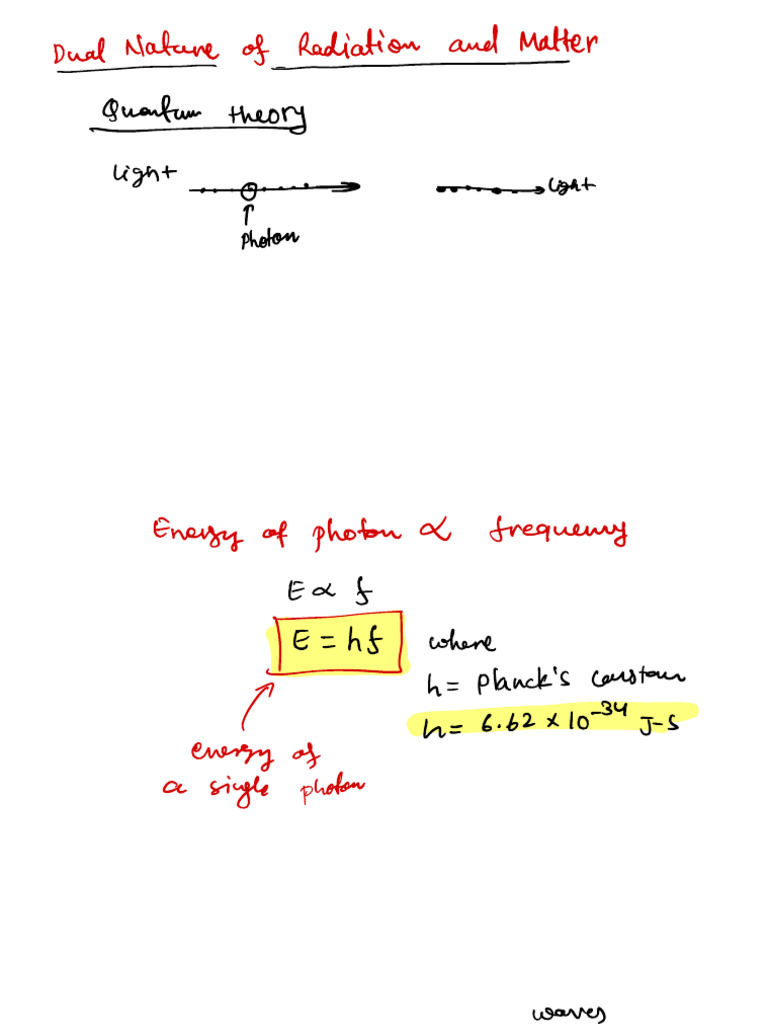 Dual Nature of Radiation and Matter
Quantum theory
Light
Light
Photon
Energy of photon ∝ frequency
E ∝ f
E = hf
where
h = Planck's constan
h = 6.62 × 10⁻³⁴ J-S
energy of
a single photon
waves